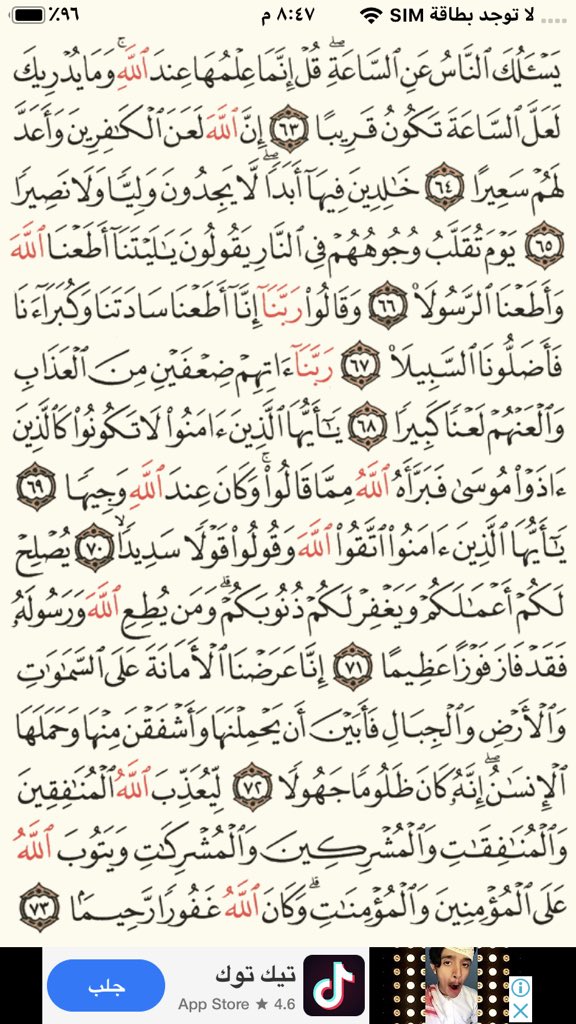 لا توجد بطاقة SIM ٨:٤٧ م ٩٦٪
يَسْـَٔلُكَ ٱلنَّاسُ عَنِ ٱلسَّاعَةِۖ قُلْ إِنَّمَا عِلْمُهَا عِندَ ٱللَّهِۚ وَمَا يُدْرِيكَ
لَعَلَّ ٱلسَّاعَةَ تَكُونُ قَرِيبًا ٦٣ إِنَّ ٱللَّهَ لَعَنَ ٱلْكَٰفِرِينَ وَأَعَدَّ
لَهُمْ سَعِيرًا ٦٤ خَٰلِدِينَ فِيهَآ أَبَدًاۖ لَّا يَجِدُونَ وَلِيًّا وَلَا نَصِيرًا
٦٥ يَوْمَ تُقَلَّبُ وُجُوهُهُمْ فِى ٱلنَّارِ يَقُولُونَ يَٰلَيْتَنَآ أَطَعْنَا ٱللَّهَ
وَأَطَعْنَا ٱلرَّسُولَا۠ ٦٦ وَقَالُوا۟ رَبَّنَآ إِنَّآ أَطَعْنَا سَادَتَنَا وَكُبَرَآءَنَا
فَأَضَلُّونَا ٱلسَّبِيلَا۠ ٦٧ رَبَّنَآ ءَاتِهِمْ ضِعْفَيْنِ مِنَ ٱلْعَذَابِ
وَٱلْعَنْهُمْ لَعْنًا كَبِيرًا ٦٨ يَٰٓأَيُّهَا ٱلَّذِينَ ءَامَنُوا۟ لَا تَكُونُوا۟ كَٱلَّذِينَ
ءَاذَوْا۟ مُوسَىٰ فَبَرَّأَهُ ٱللَّهُ مِمَّا قَالُوا۟ۚ وَكَانَ عِندَ ٱللَّهِ وَجِيهًا ٦٩
يَٰٓأَيُّهَا ٱلَّذِينَ ءَامَنُوا۟ ٱتَّقُوا۟ ٱللَّهَ وَقُولُوا۟ قَوْلًا سَدِيدًا ٧٠ يُصْلِحْ
لَكُمْ أَعْمَٰلَكُمْ وَيَغْفِرْ لَكُمْ ذُنُوبَكُمْۗ وَمَن يُطِعِ ٱللَّهَ وَرَسُولَهُۥ
فَقَدْ فَازَ فَوْزًا عَظِيمًا ٧١ إِنَّا عَرَضْنَا ٱلْأَمَانَةَ عَلَى ٱلسَّمَٰوَٰتِ
وَٱلْأَرْضِ وَٱلْجِبَالِ فَأَبَيْنَ أَن يَحْمِلْنَهَا وَأَشْفَقْنَ مِنْهَا وَحَمَلَهَا
ٱلْإِنسَٰنُۖ إِنَّهُۥ كَانَ ظَلُومًا جَهُولًا ٧٢ لِّيُعَذِّبَ ٱللَّهُ ٱلْمُنَٰفِقِينَ
وَٱلْمُنَٰفِقَٰتِ وَٱلْمُشْرِكِينَ وَٱلْمُشْرِكَٰتِ وَيَتُوبَ ٱللَّهُ
عَلَى ٱلْمُؤْمِنِينَ وَٱلْمُؤْمِنَٰتِۗ وَكَانَ ٱللَّهُ غَفُورًا رَّحِيمًۢا ٧٣
تيك توك
App Store ★ 4.6
جلب